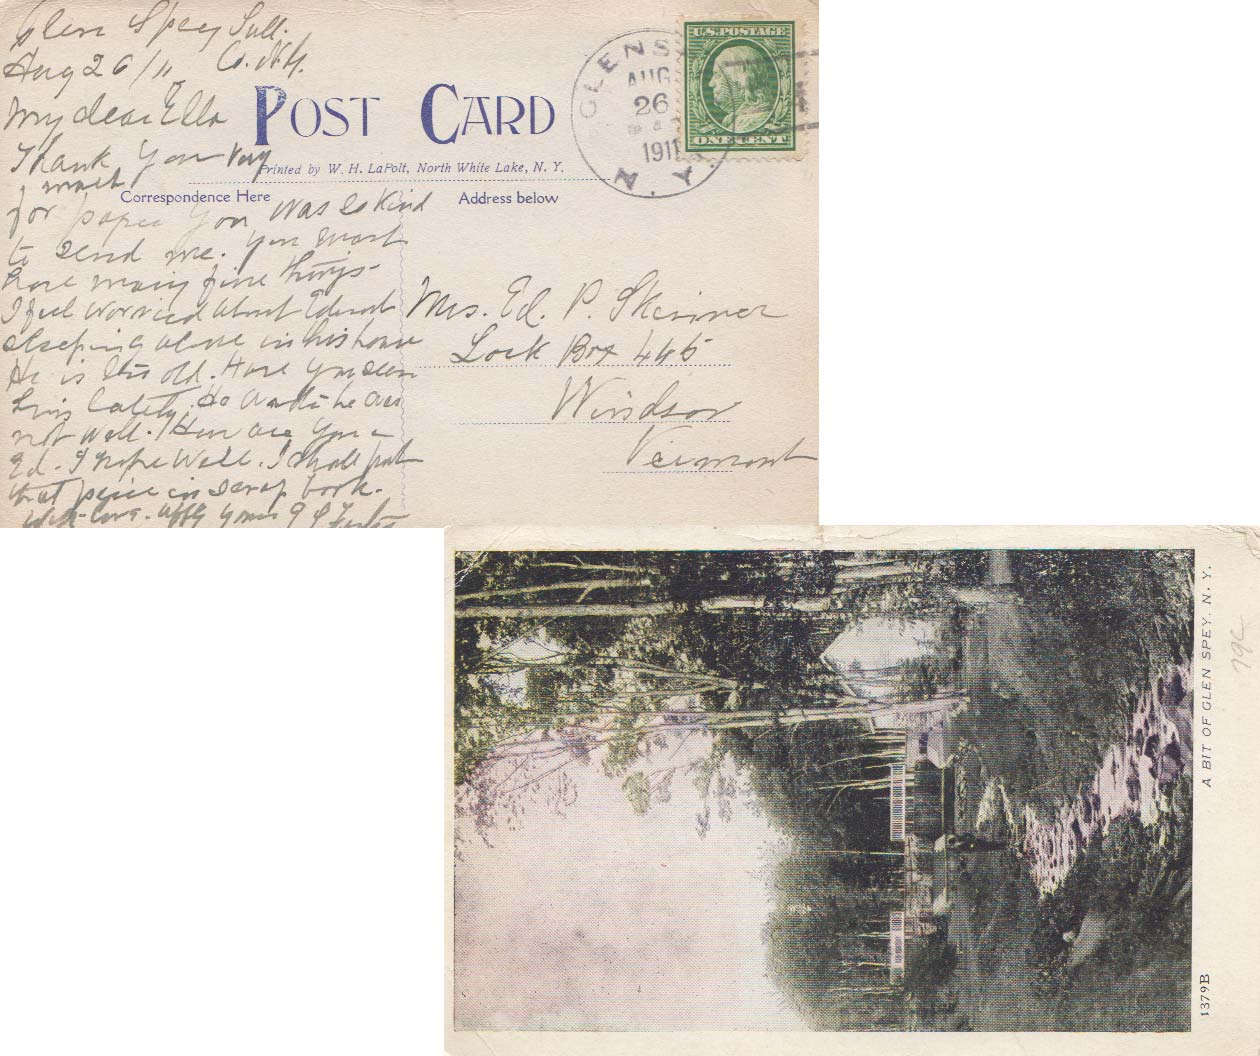 Glen Spey Sull.
Aug 26/11 Co. N.Y.
My dear Ella
Thank you very
much
for paper you was so kind
to send me. You must
have many fine things-
I feel worried about Edward
sleeping alone in his house
He is so old. Have you seen
him lately. He was
not well. How are you
Ed. I hope well. I shall put
that peice in scrap book.
With love. Affly yours
POST CARD
Printed by W. H. LaPolt, North White Lake, N. Y.
Correspondence Here
Address below
GLENS
AUG
26
1911
N.Y.
U.S. POSTAGE
ONE CENT
Mrs. Ed. P. Skinner
Lock Box 445
Windsor
Vermont
A BIT OF GLEN SPEY, N. Y.
1379B